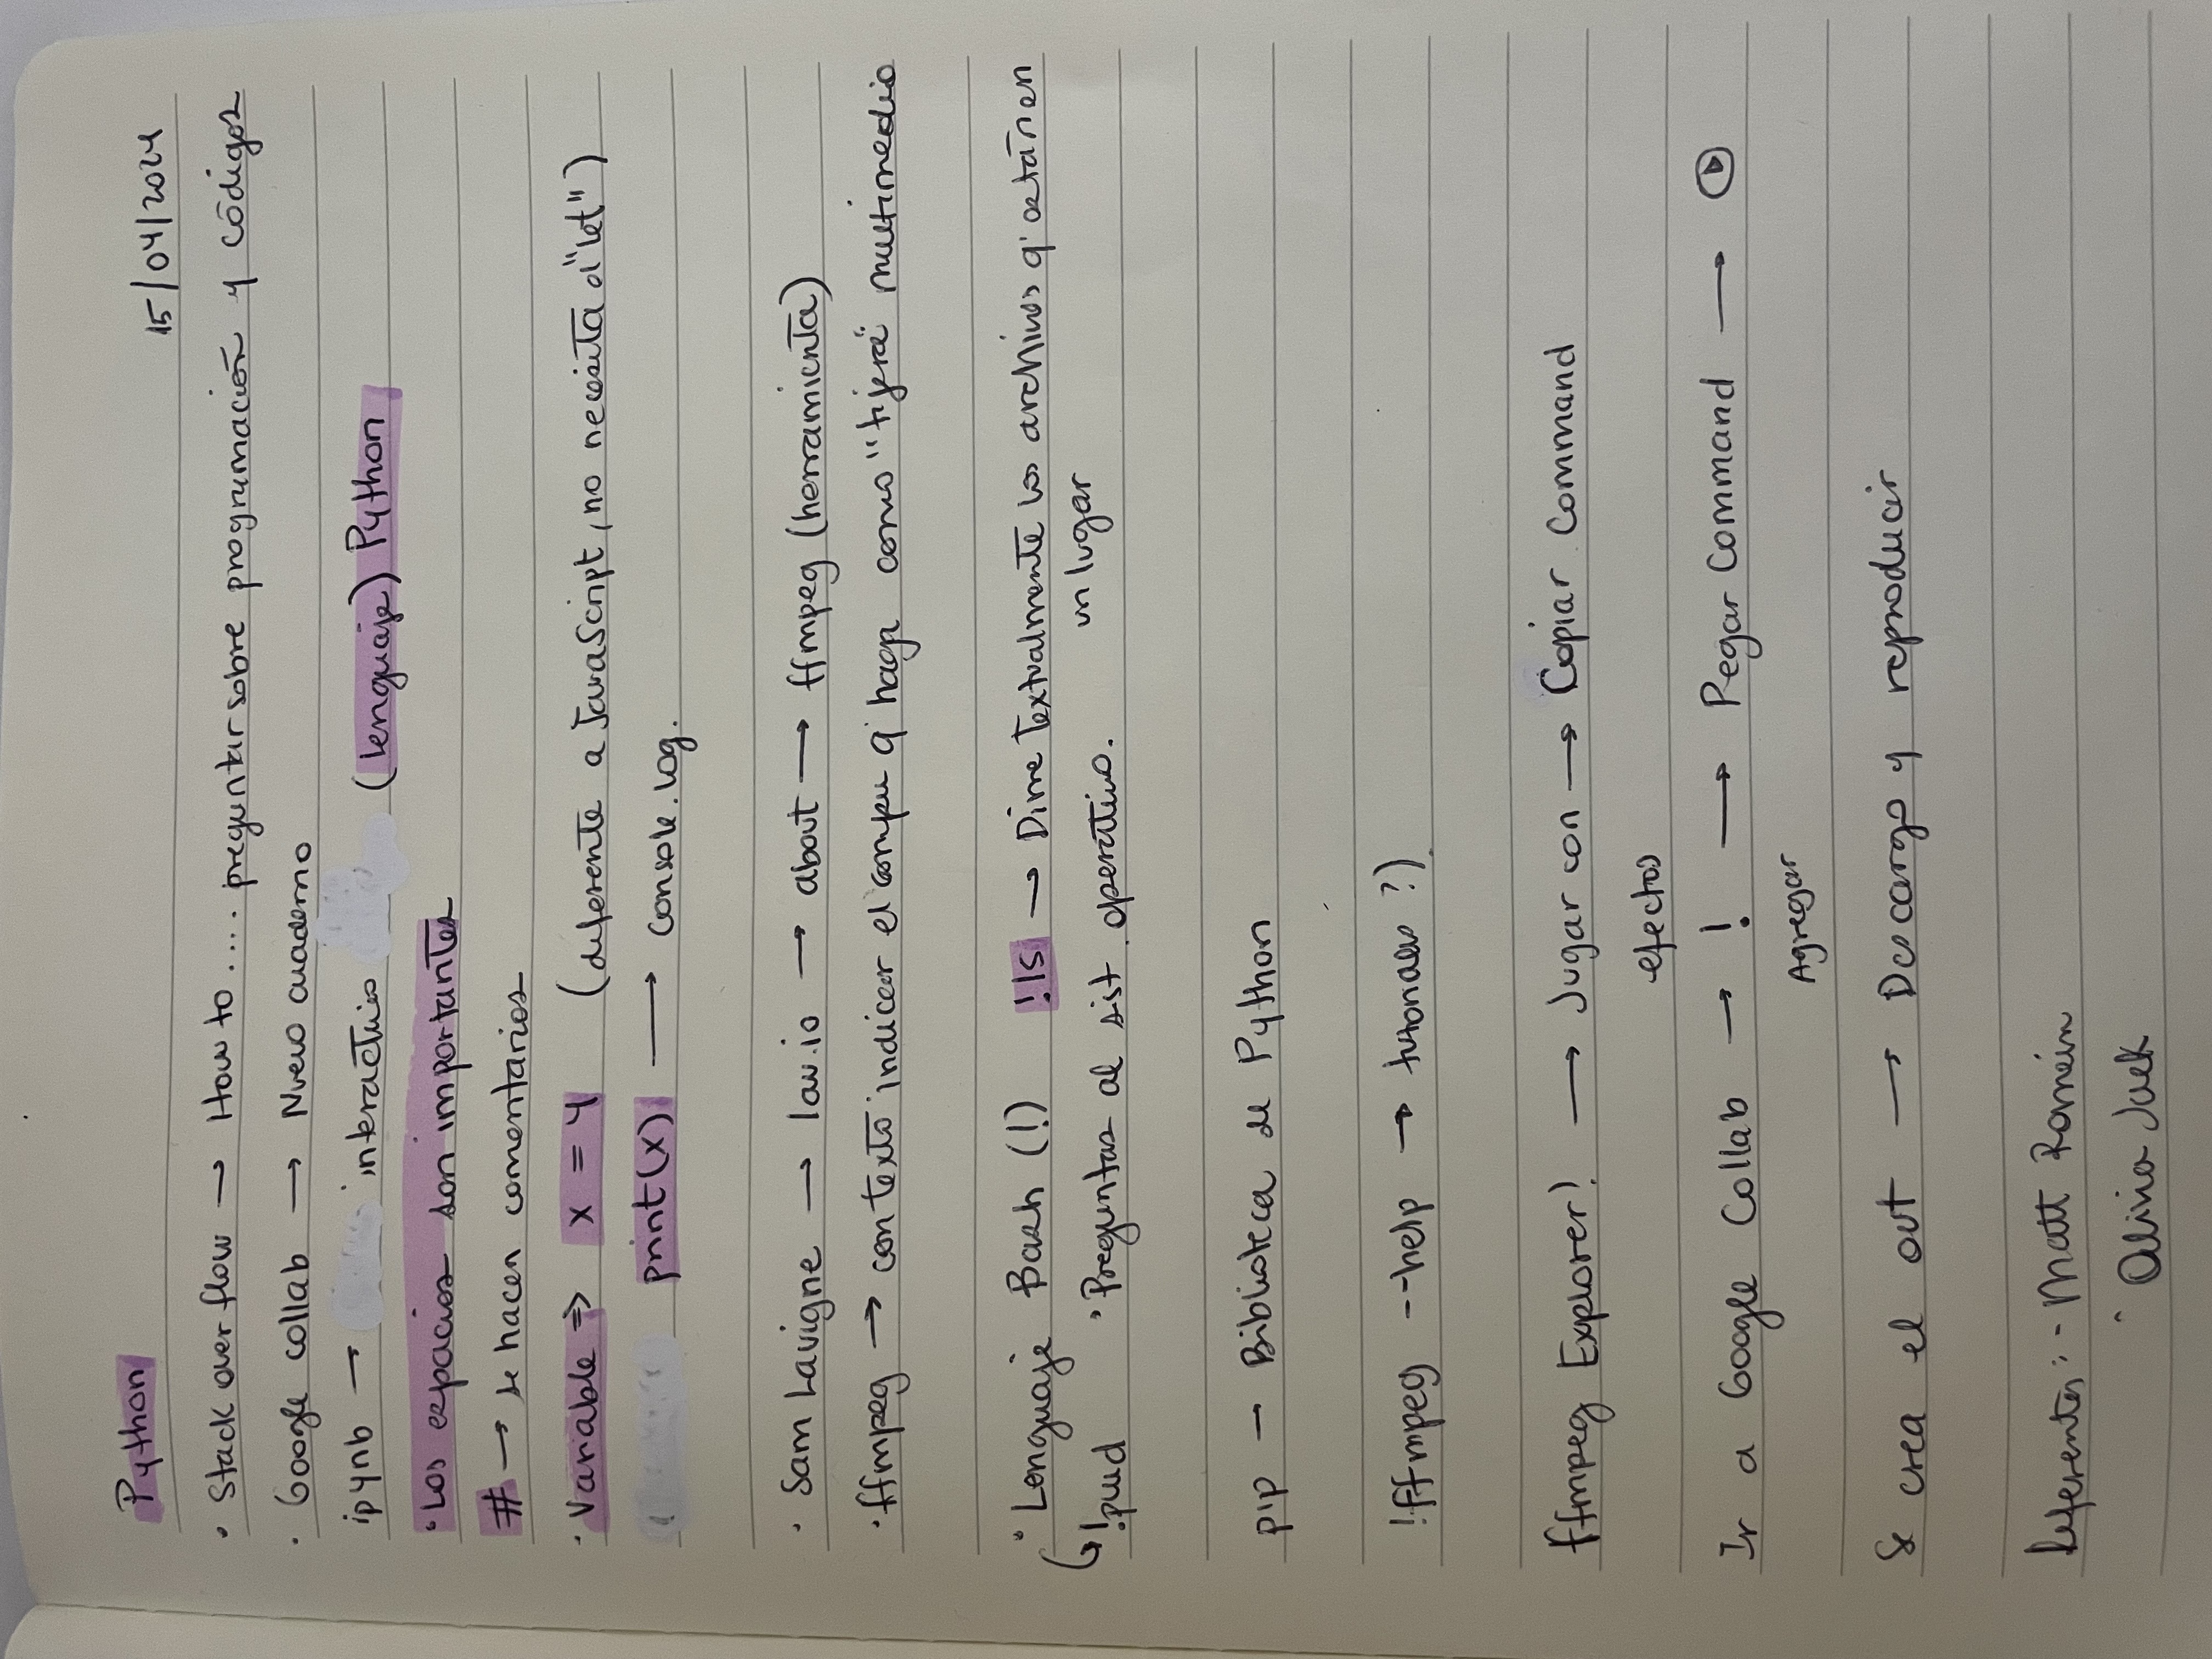 Python
15/04/2024
• Stack over flow → How to .... preguntar sobre programación y códigos
• Google collab → Nuevo cuaderno
ipynb → interactivo (lenguaje) Python
• Los espacios son importantes
# → se hacen comentarios
• Variable ⇒ x = 4 (diferente a JavaScript, no necesita el "let")
print(x) → console.log.
• Sam Lavigne → lav.io → about → ffmpeg (herramienta)
• ffmpeg → con texto indicar el compu q' haga como "tijera" multimedio
• Lenguaje Bash (!) !ls → Dime textualmente los archivos q' están en
un lugar
!pwd • Preguntas al sist. operativo.
pip → Biblioteca de Python
!ffmpeg --help → tutoriales ?)
ffmpeg Explorer! → Jugar con → Copiar Command
efectos
Ir a Google Collab → ! → Pegar Command →
Agregar
Se crea el out → Descargo y reproducir
Referentes: - Matt Romein
- Olivia Jack